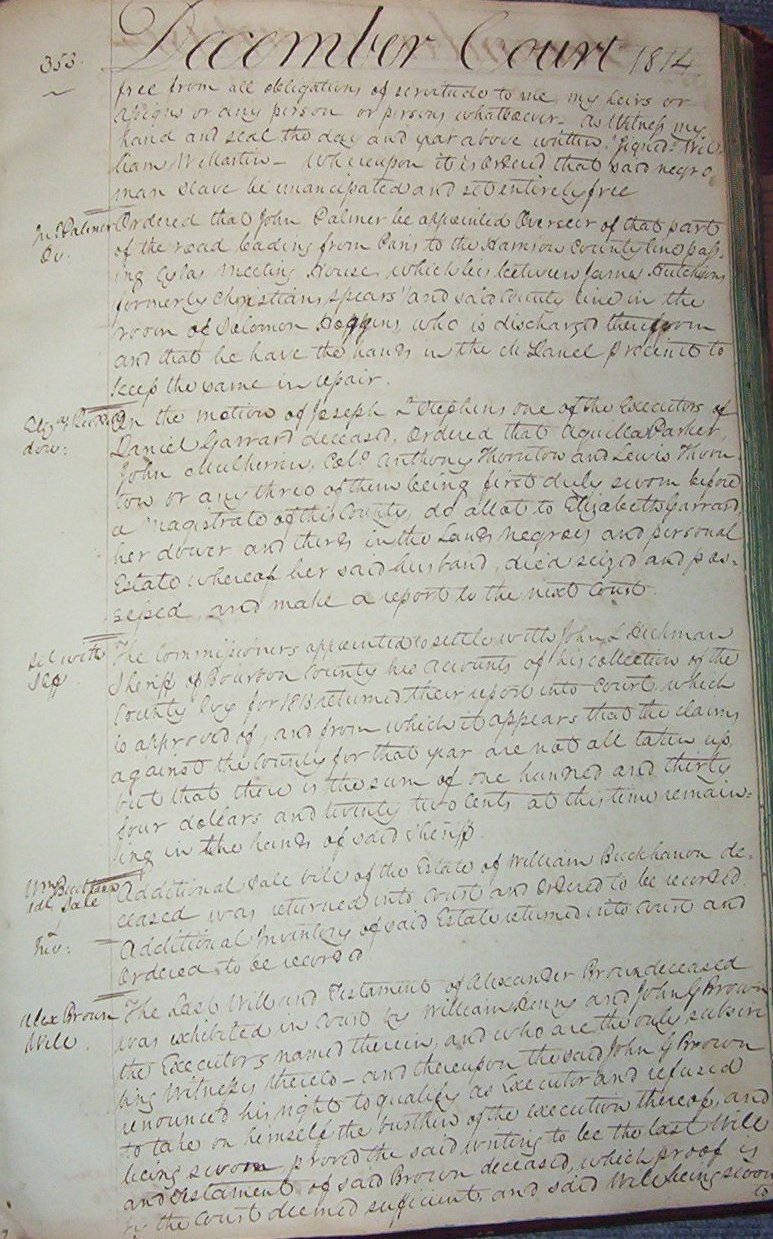 353.
December Court 1814.
free from all obligations of servitude to me, my heirs or
assigns or any person or persons whatsoever – As Witness my
hand and seal the day and year above written. "Signed" Wil-
liam – Whereupon it is Ordered that said negro
man slave be emancipated and set entirely free
Jno Palmer
Ov:
Ordered that John Palmer be appointed Overseer of that part
of the road leading from Paris to the Harrison County line pass-
ing Meeting House, which lies between James Hutchins
formerly Christian Spears" and said County line in the
room of Solomon Hoggins who is discharged therefrom
and that he have the hands in the precinct to
keep the same in repair.
dow:
On the motion of Joseph L Stephens one of the Executors of
Daniel Garrard deceased, Ordered that Aquilla Parker,
John Mulherrin, Colo. Anthony Thornton and Lewis Thorn-
ton or any three of them being first duly sworn before
a Magistrate of this County, do allot to Elizabeth Garrard,
her dower and thirds in the Lands negroes and personal
Estate whereof her said husband, died seized and pos-
sessed, and make a report to the next Court.
Set with
Sff
The Commissioners appointed to settle with John L Hickman
Sheriff of Bourbon County his accounts of his collection of the
County levy for 1813 returned their report into Court which
is approved of, and from which it appears that the claims
against the County for that year are not all taken up,
but that there is the sum of one hundred and thirty
four dollars and twenty two cents at this time remain-
ing in the hands of said Sheriff.
Wm Buckhanon
adl Sale
&
Inv:
Additional Sale bill of the Estate of William Buckhanon de-
ceased was returned into Court and Ordered to be recorded.
Additional Inventory of said Estate returned into Court and
Ordered to be recorded
Alex Brown
Will.
The Last Will and Testament of Alexander Brown deceased
was exhibited in Court by William Denny and John G Brown
the Executors named therein, and who are the only subscri
bing Witnesses thereto – and thereupon the said John G Brown
renounced his right to qualify as Executor and refused
to take on himself the burthen of the execution thereof, and
being sworn proved the said writing to be the last Will
and Testament of said Brown deceased, which proof is
by the Court deemed sufficient, and said Will being sworn
to